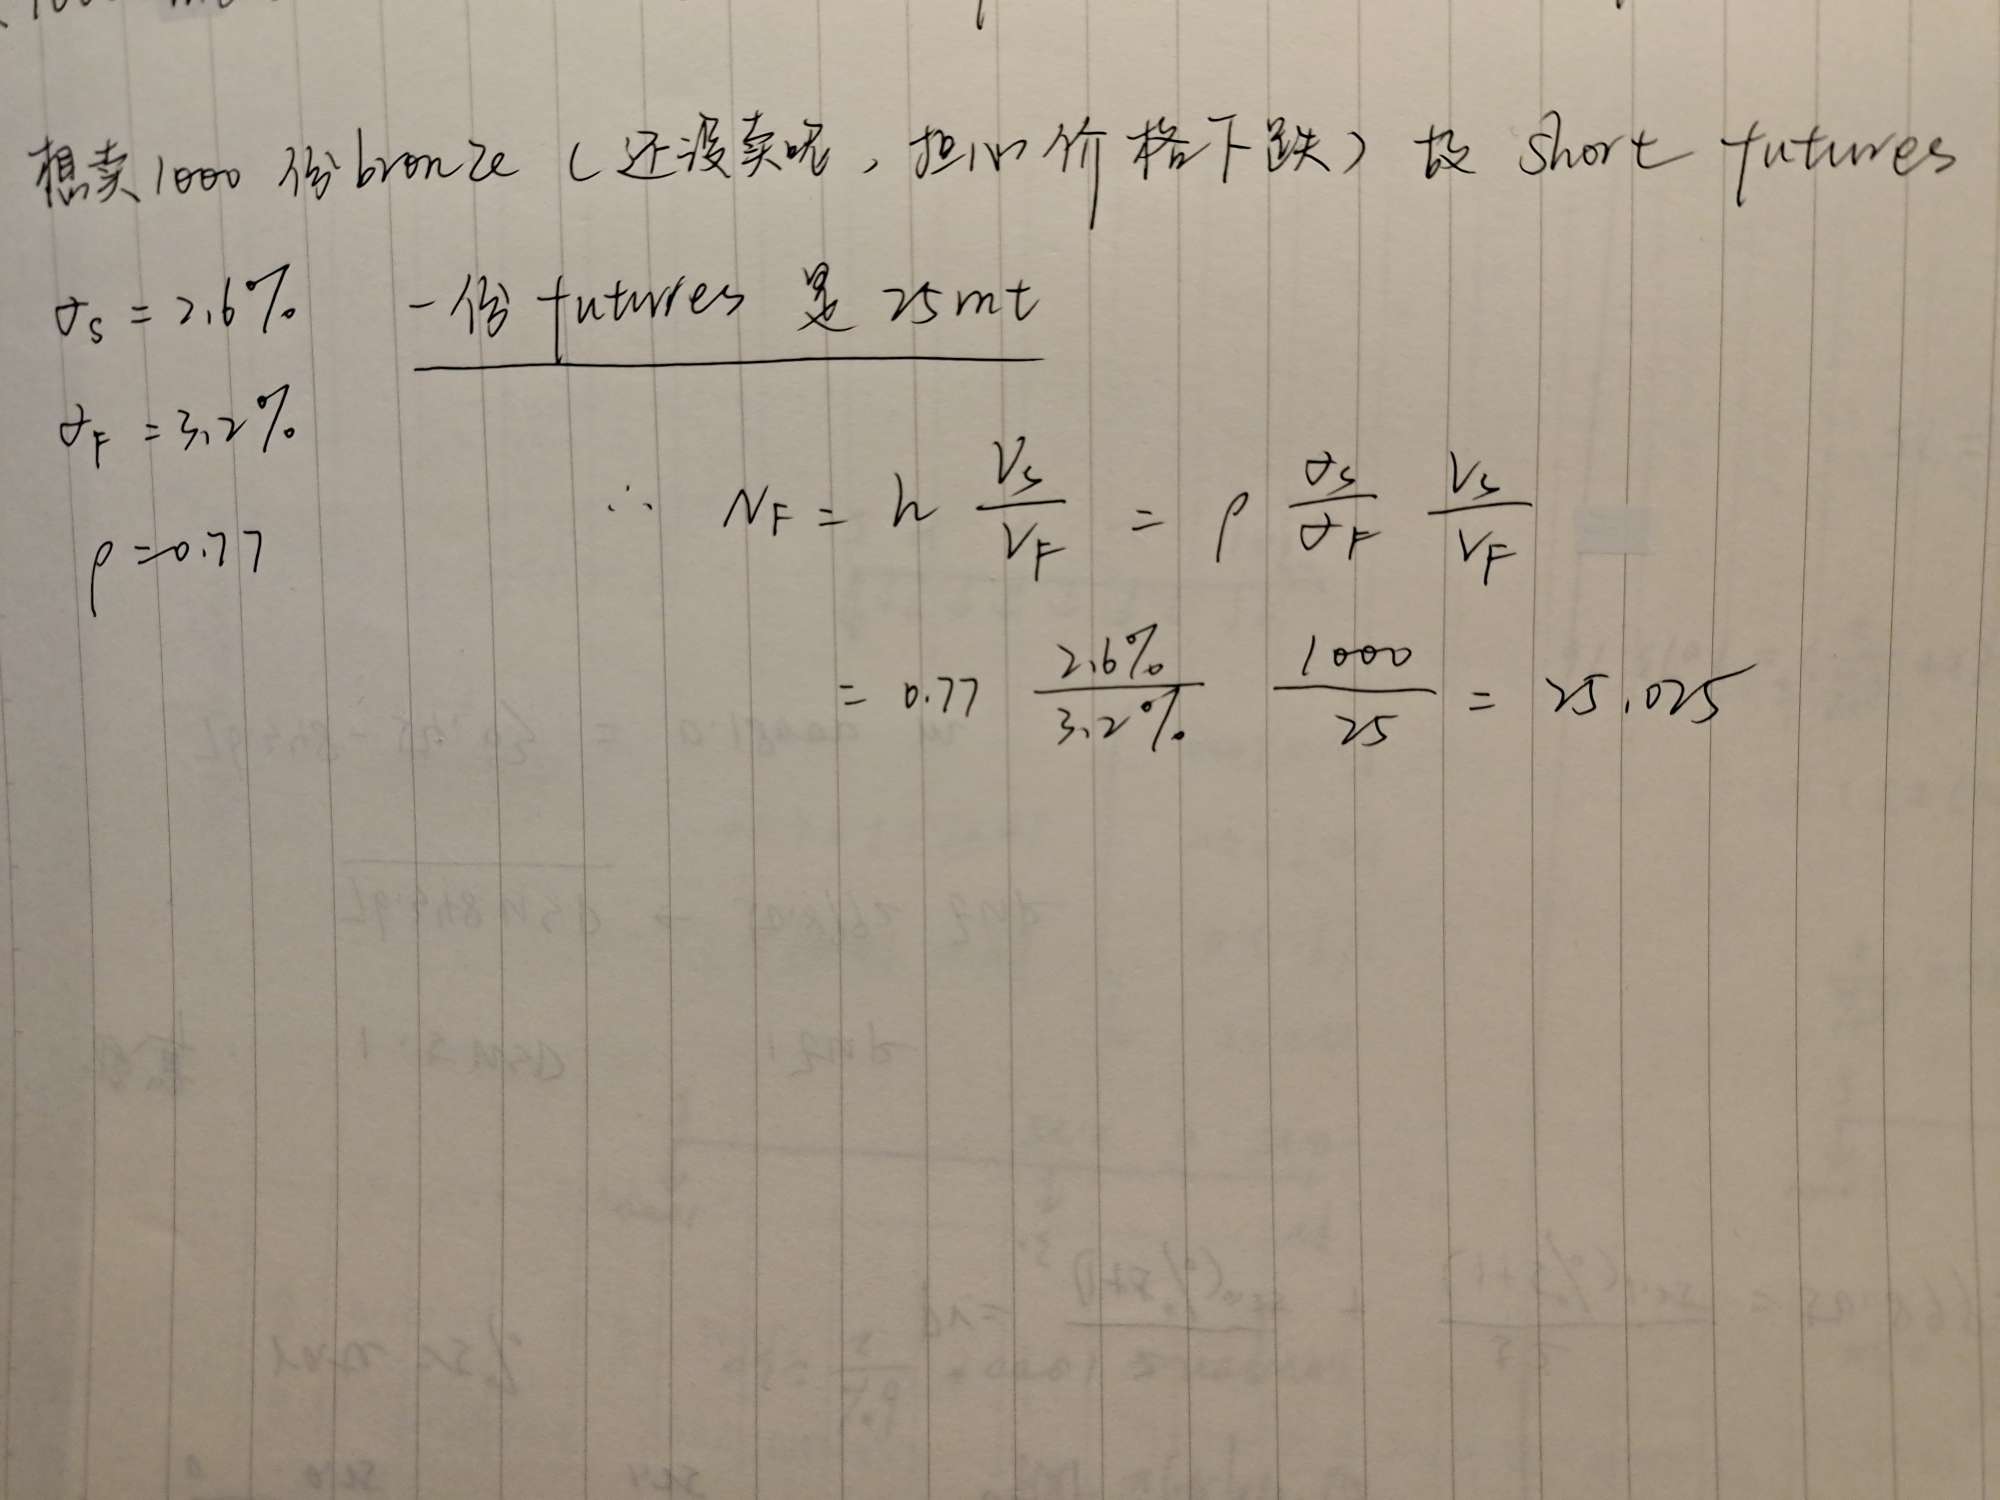 想卖1000 份bronze（还没卖呢，担心价格下跌）故 short futures
σS = 2.6%  一份 futures 是 25mt
σF = 3.2%
ρ = 0.77
∴ NF = h VS/VF = ρ σS/σF VS/VF
= 0.77 2.6%/3.2% 1000/25 = 25.025